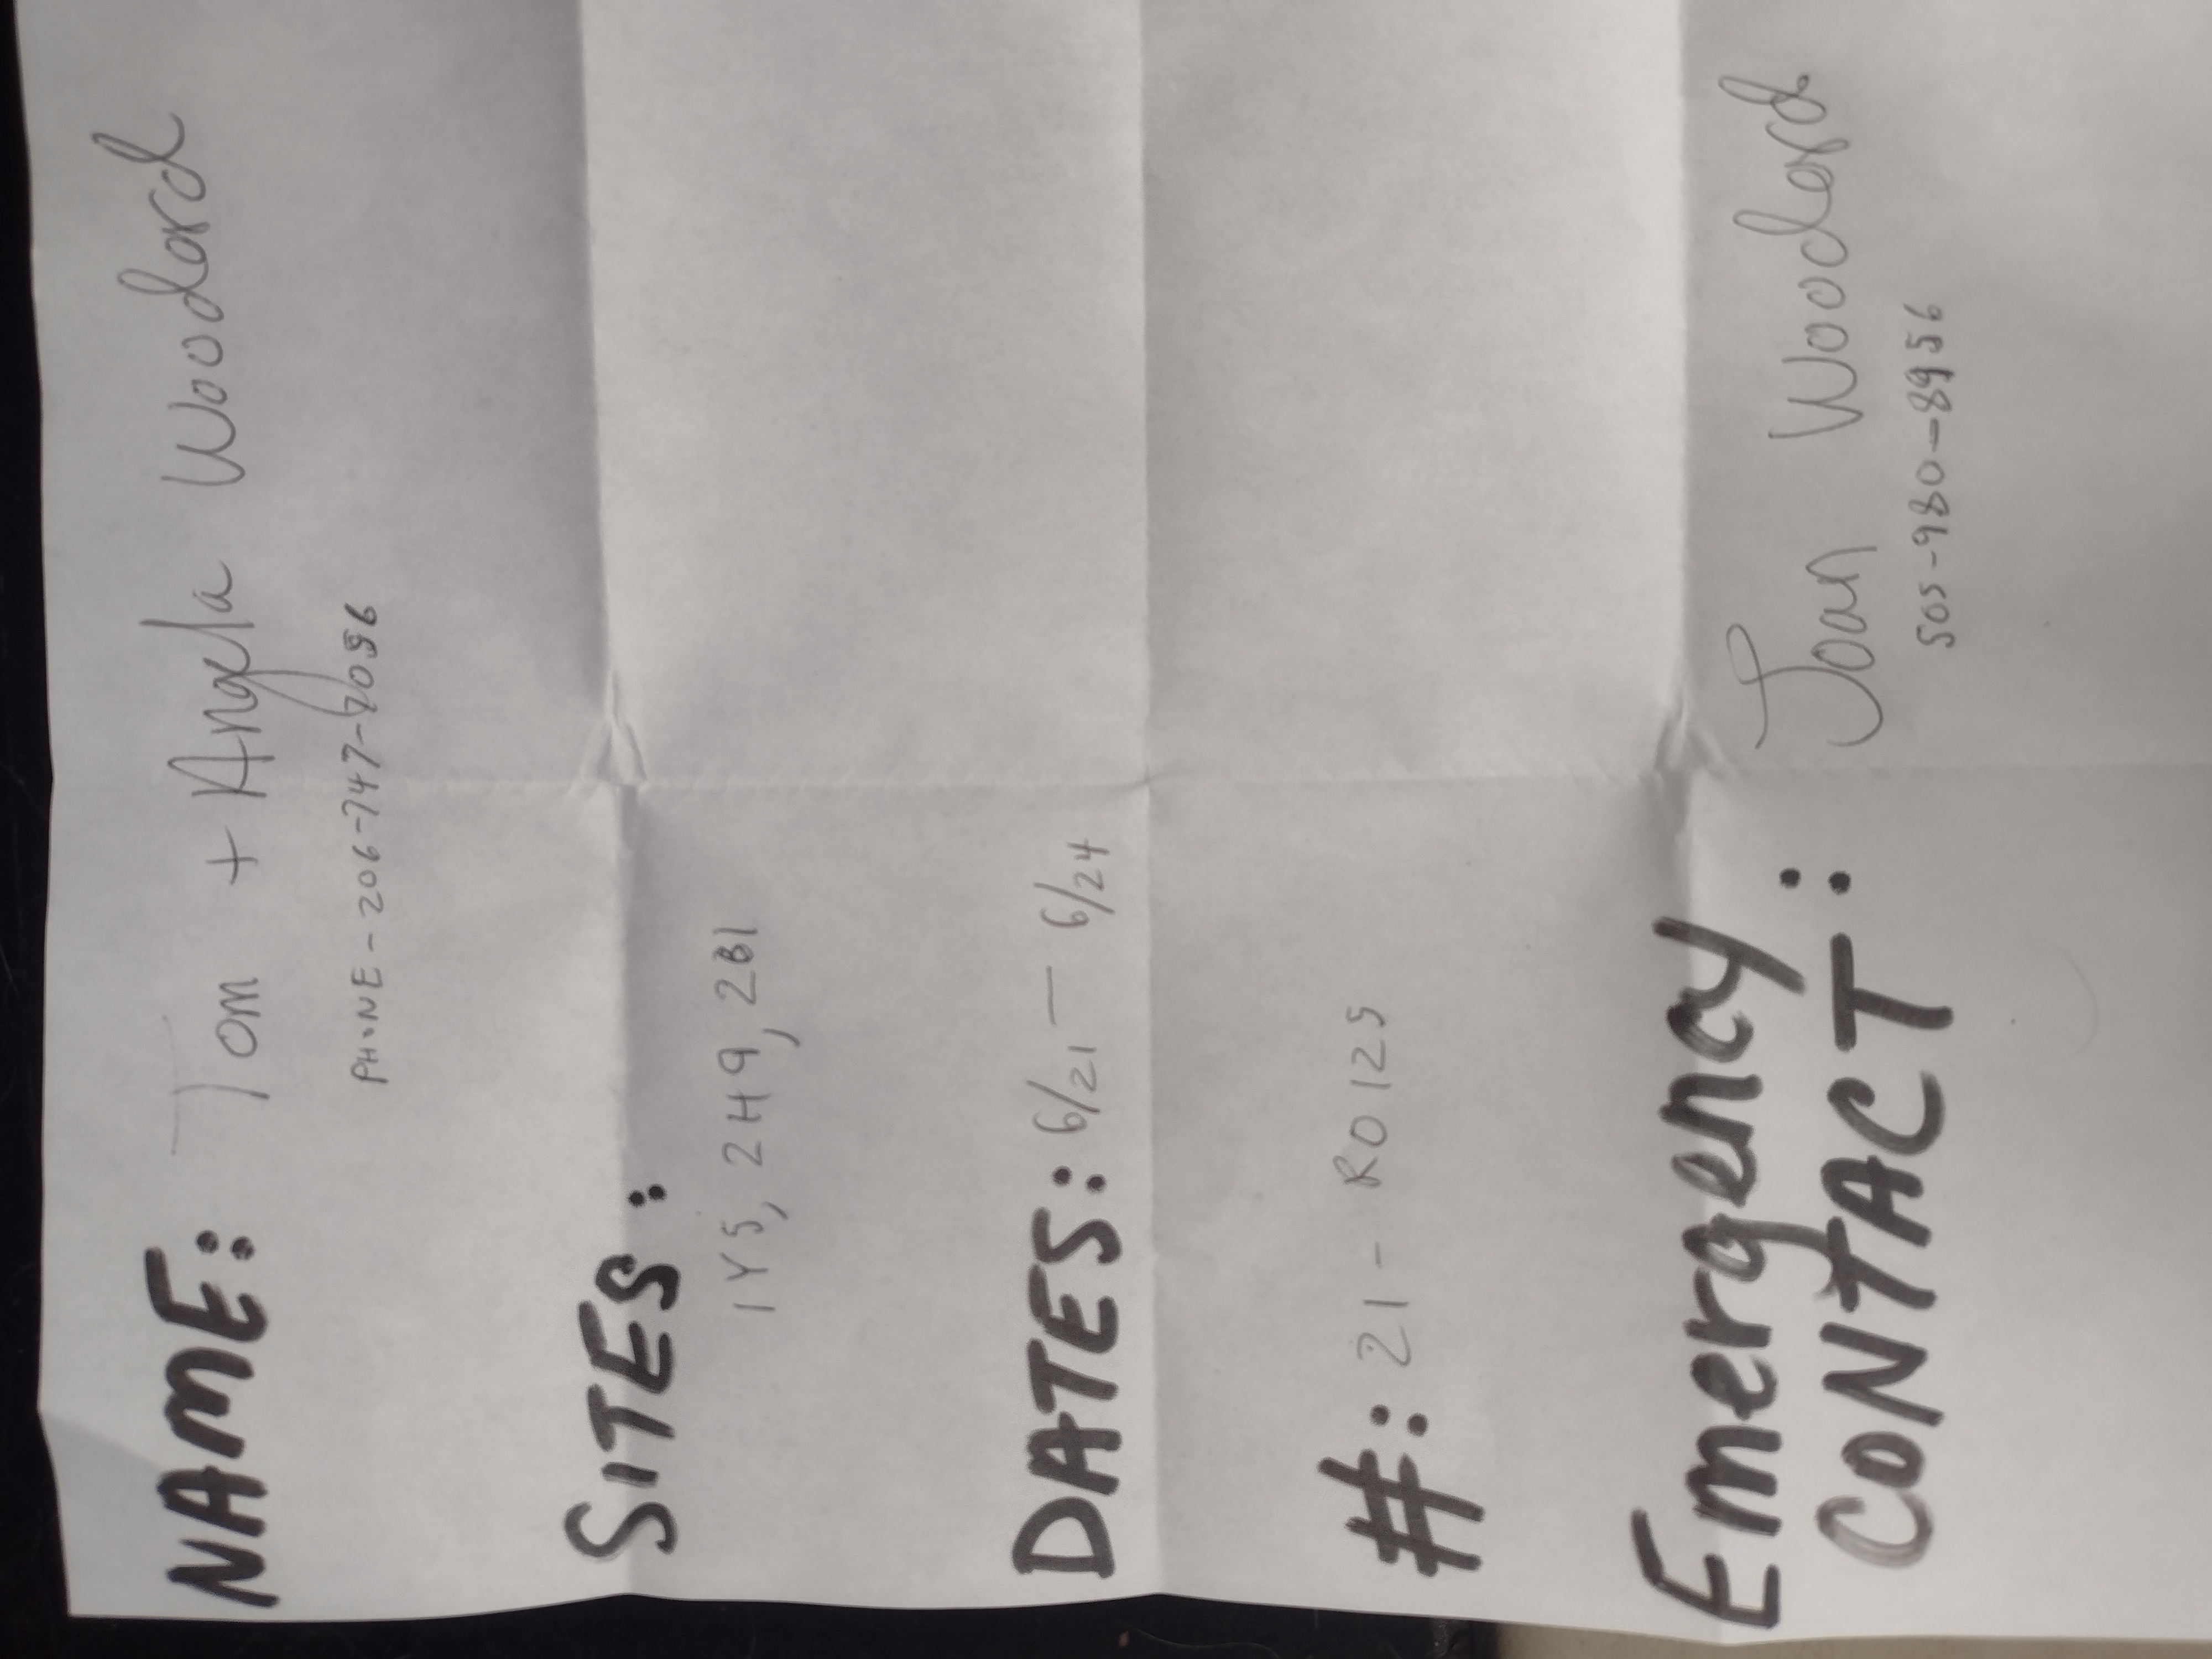 NAME: Tom + Angela Woodard
PHONE - 206-747-7056
SITES:
1Y5, 2H9, 2B1
DATES: 6/21 - 6/24
#: 21 - R0125
Emergency
CONTACT: Joan Woodard
505-980-8956